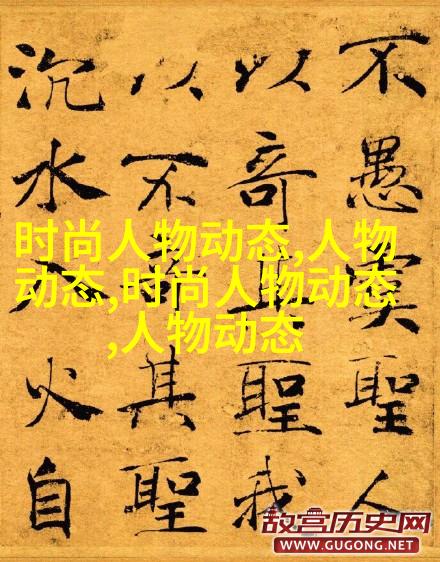 不愚聖人
以奇聖我
以不其聖
沉水火自
时尚人物动态,人物
动态,时尚人物动态
,人物动态
故宫历史网
WWW.GUGONG.NET